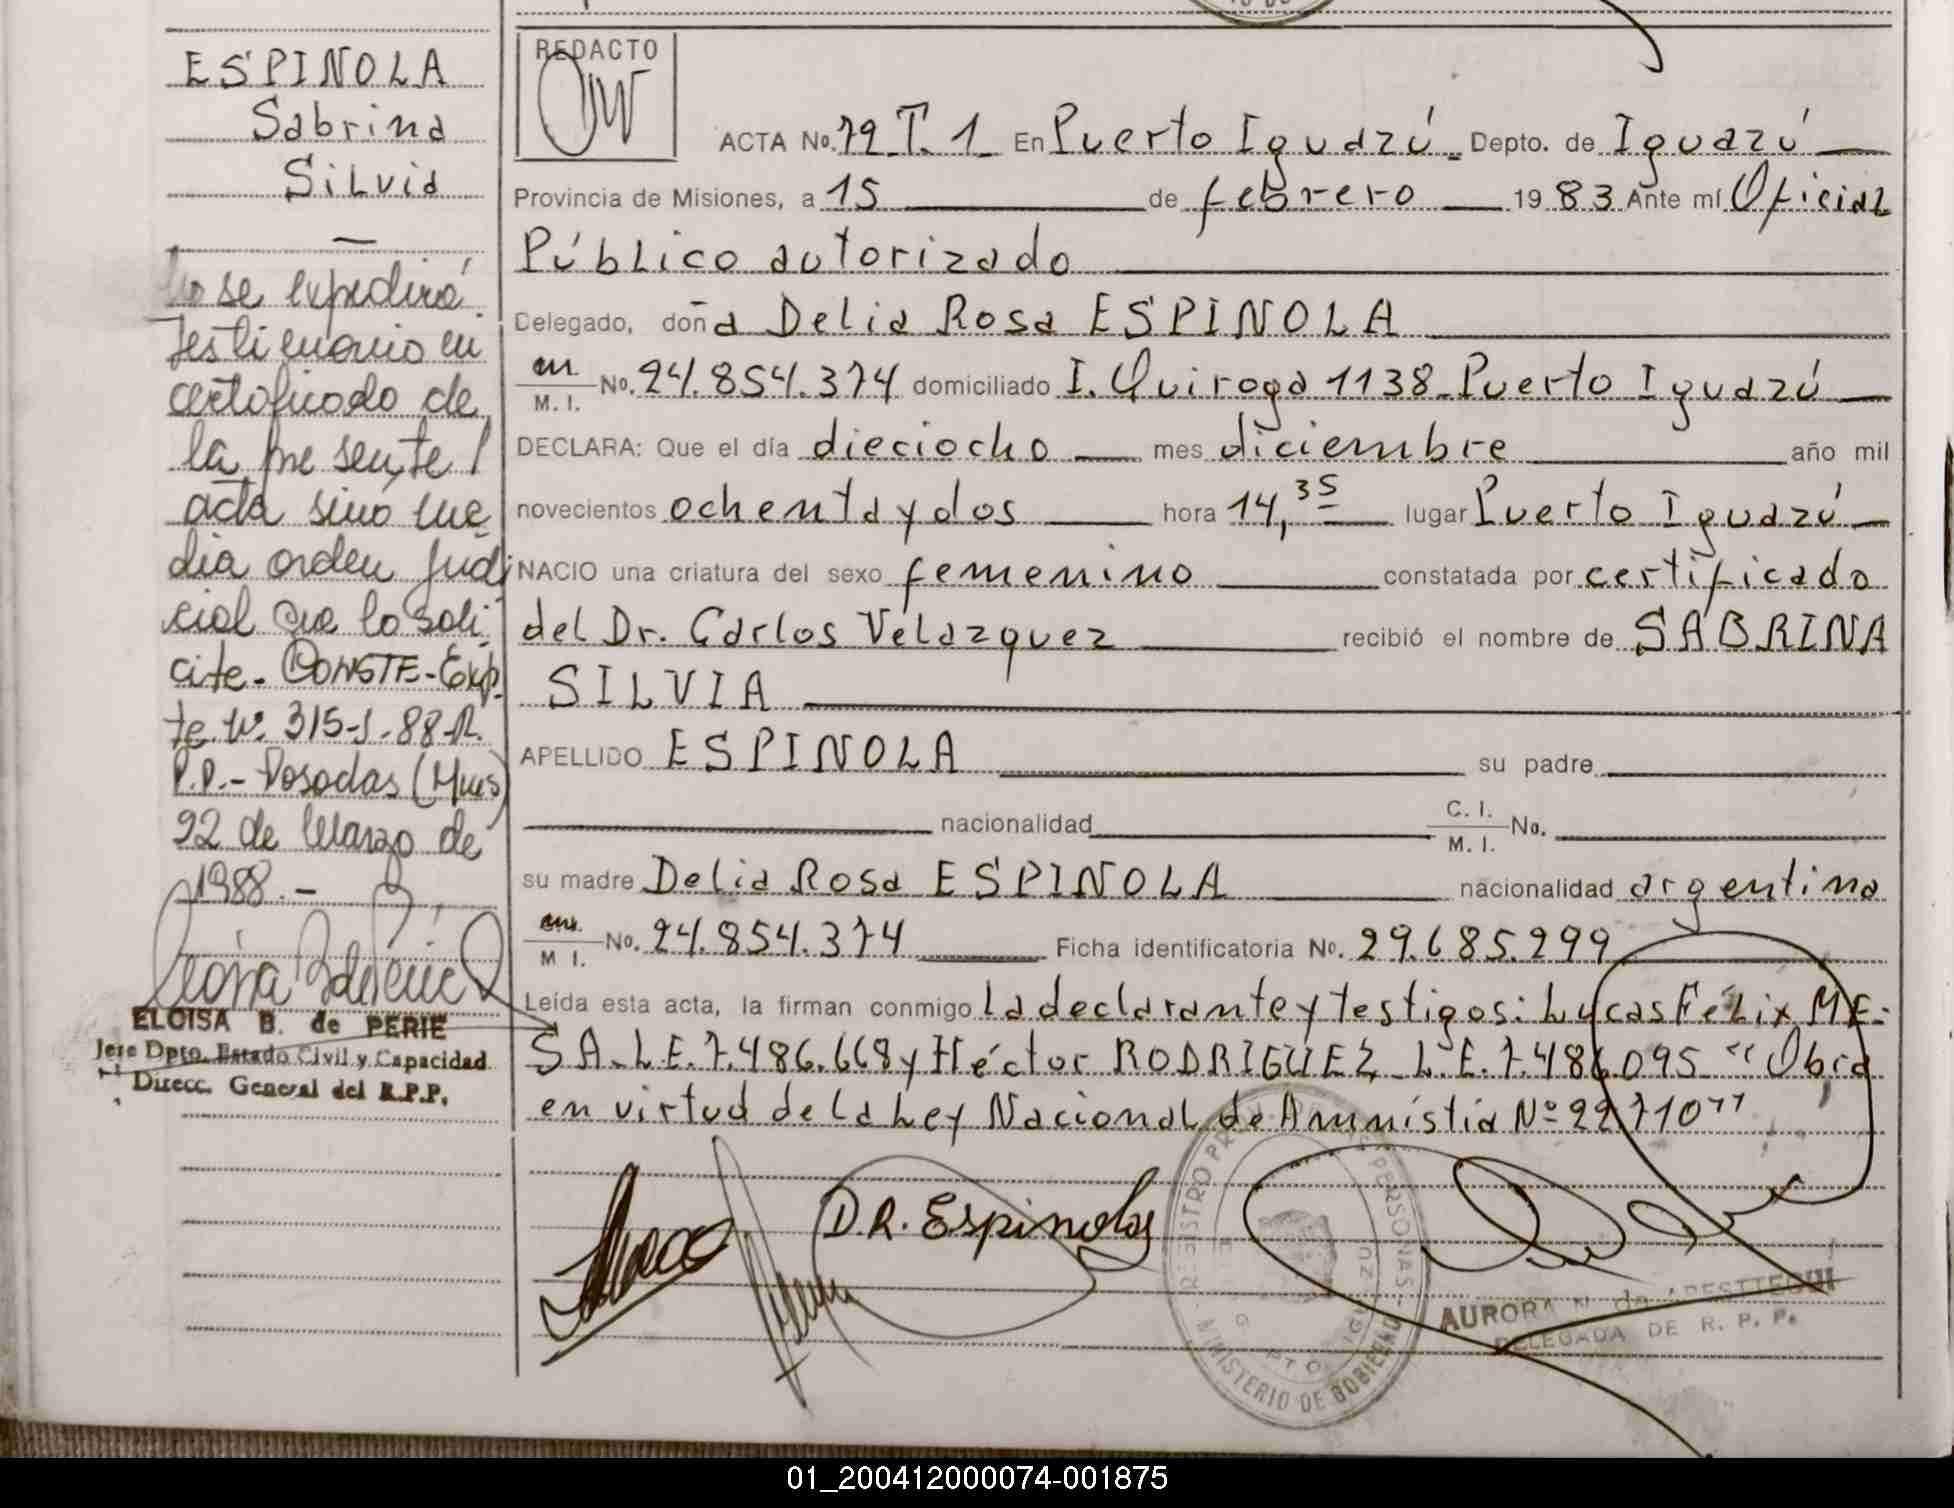 ESPINOLA
Sabrina
Silvia
—
No se expedirá
Testimonio en
certificado de
la presente
acta sino me
dia orden judi
cial que lo soli
cite. CONSTE-Exp
te. Nº 315-J-88-R.
P.P.- Posadas (Mnes)
22 de Marzo de
1988.-
ELOISA B. de PERIE
Jefe Dpto. Estado Civil y Capacidad
Direcc. General del R.P.P.
REDACTO
ACTA No. 72 T. 1 En Puerto Iguazú Depto. de Iguazú
Provincia de Misiones, a 15 de febrero 1983 Ante mí Oficial
Público autorizado
Delegado, doña Delia Rosa ESPINOLA
M. I. No. 24.854.374 domiciliado I. Quiroga 1138 Puerto Iguazú
DECLARA: Que el día dieciocho mes diciembre año mil
novecientos ochenta y dos hora 14,35 lugar Puerto Iguazú
NACIO una criatura del sexo femenino constatada por certificado
del Dr. Carlos Velazquez recibió el nombre de SABRINA
SILVIA
APELLIDO ESPINOLA su padre
nacionalidad C. I. M. I. No.
su madre Delia Rosa ESPINOLA nacionalidad argentina
M I. No. 24.854.374 Ficha identificatoria No. 29.685.299
Leída esta acta, la firman conmigo la declarante y testigos: Lucas Félix ME-
SA. L.E. 7.486.668 y Héctor RODRIGUEZ L.E. 7.486.095 "Obra
en virtud de la Ley Nacional de Amnistía Nº 22710"
D.R. Espinola
REGISTRO PERSONAS
MINISTERIO DE GOBIERNO
AURORA N. de ARESTTEGUI
DELEGADA DE R. P. P.
01_200412000074-001875